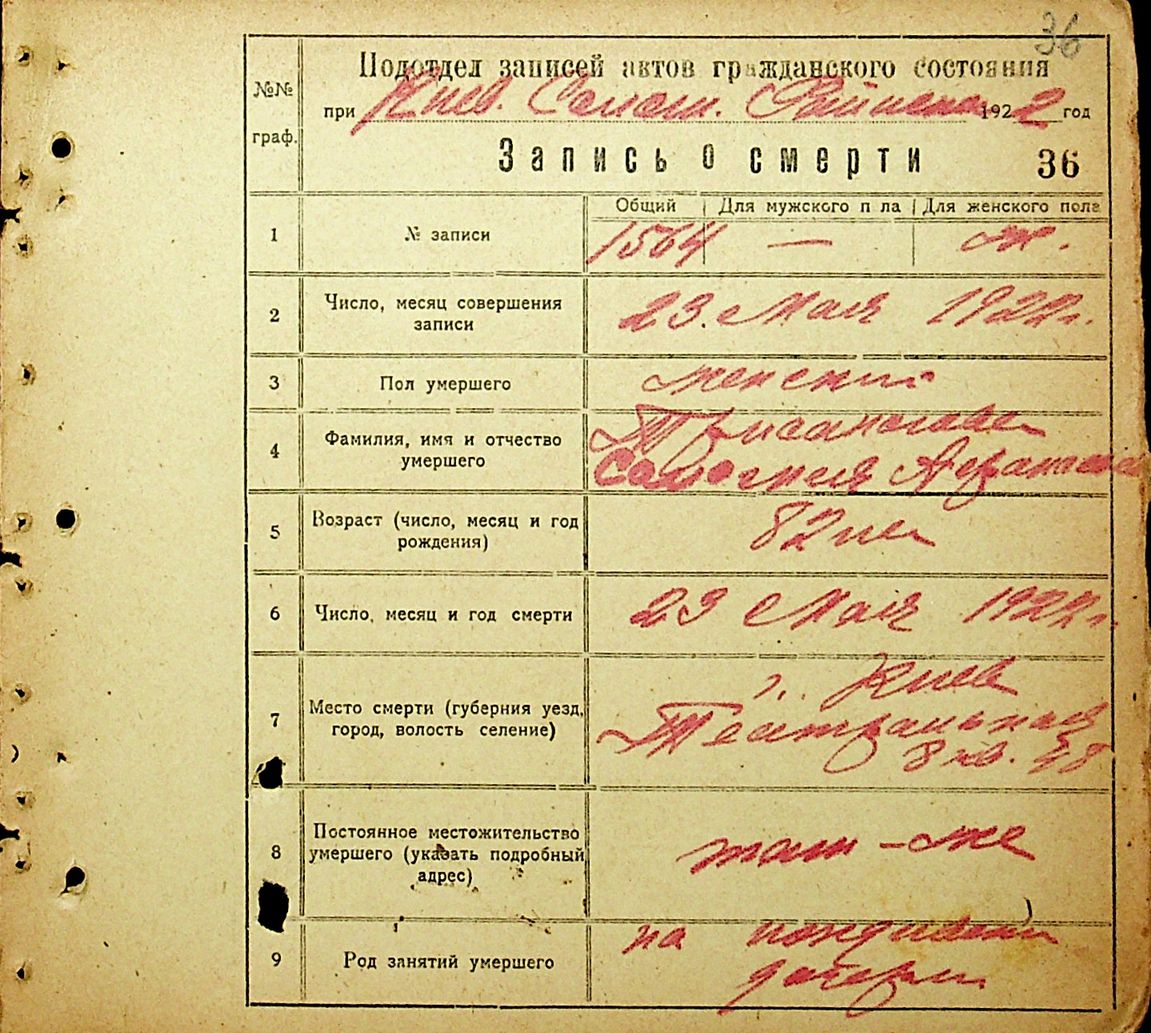 36
Подотдел записей актов гражданского состояния
№№ граф.
при Киев. Солом. 1922 год
Запись о смерти 36
Общий Для мужского п ла Для женского пола
1 № записи 1564 — ж.
2 Число, месяц совершения записи 23. Мая 1922г.
3 Пол умершего женский
4 Фамилия, имя и отчество умершего
Соломия
5 Возраст (число, месяц и год рождения) 82 лет
6 Число, месяц и год смерти 23 Мая 1922г.
7 Место смерти (губерния уезд, город, волость селение) г. Киев
Театральная
8 кв.
8 Постоянное местожительство умершего (указать подробный адрес) там-же
9 Род занятий умершего на иждивении
дочери